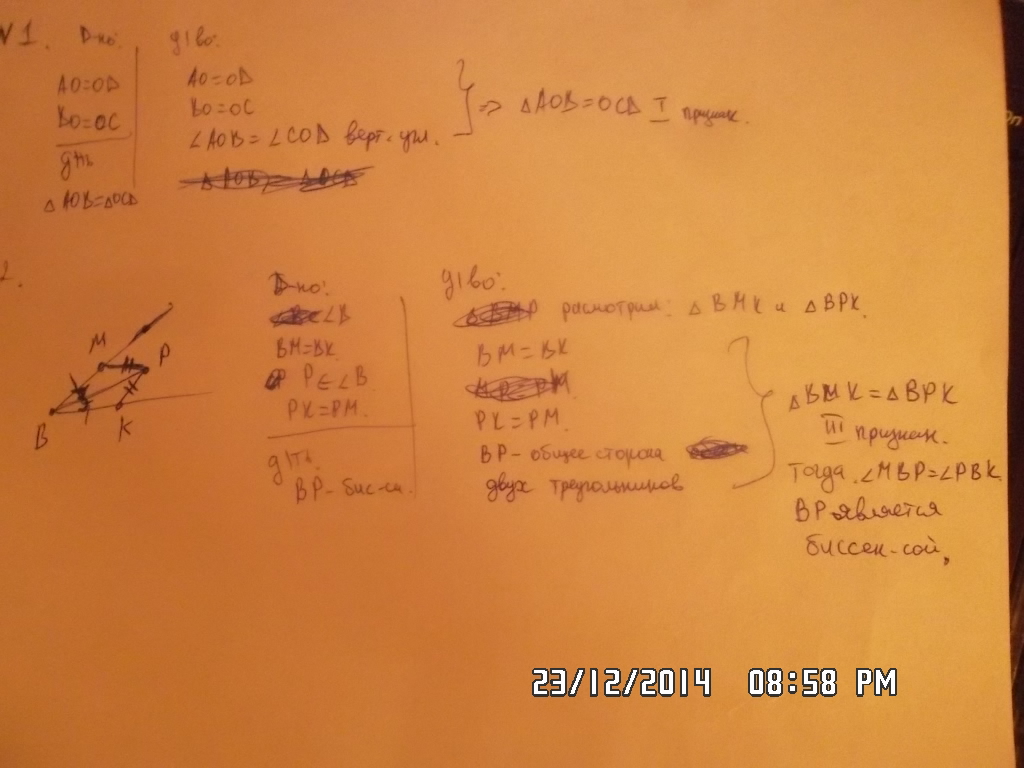 N 1. D-но: д/во:
AO=OD
BO=OC
д/ть
△AOB=△OCD
AO=OD
BO=OC
∠AOB=∠COD верт. угл.
=> △AOB=OCD I признак.
2.
M
P
B
K
D-но:
∠B
BM=BK
P∈∠B.
PK=PM.
д/ть.
BP-бис-са.
д/во:
расмотрим: △BMK и △BPK.
BM=BK
PK=PM.
BP-общее сторона
двух треугольников
△BMK=△BPK
III признак.
Тогда. ∠MBP=∠PBK.
BP является
биссек-сой.
23/12/2014 08:58 PM